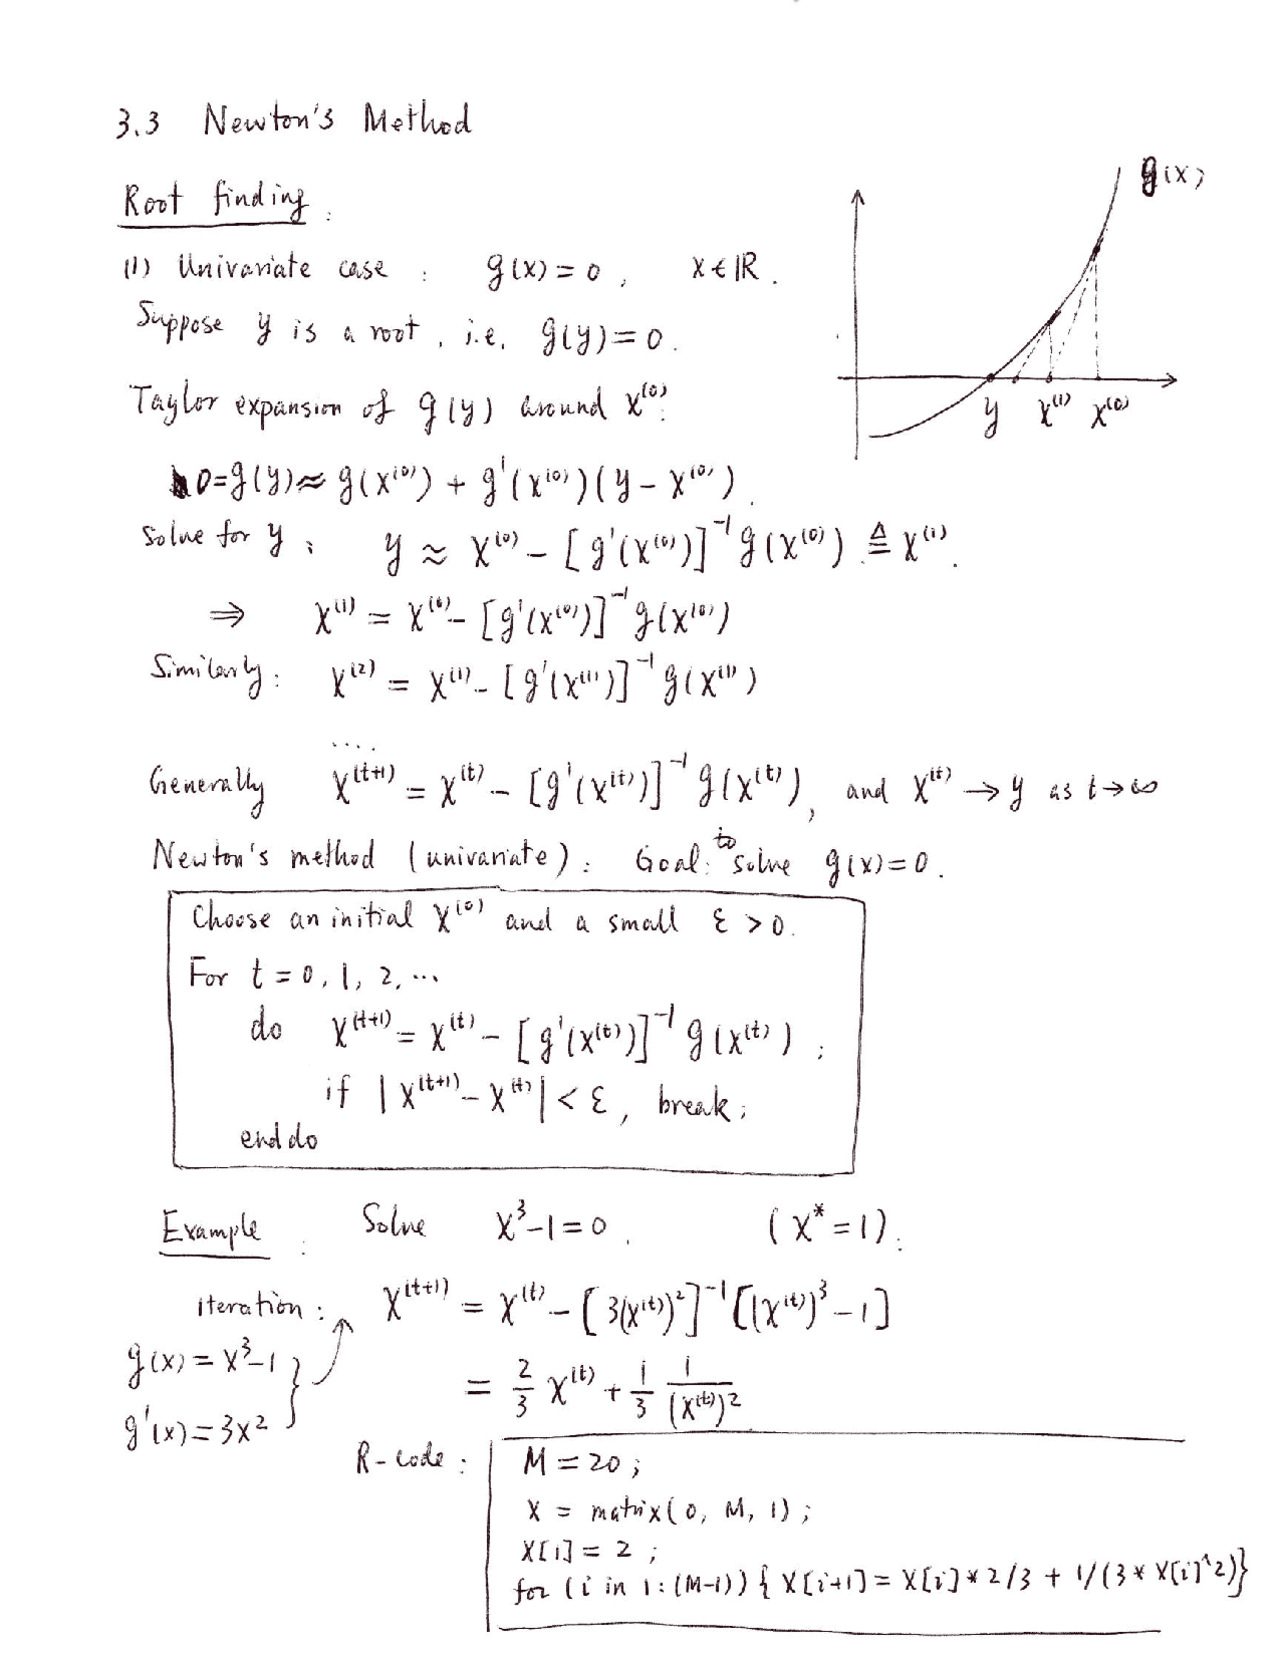 3.3 Newton's Method
g(x)
Root finding:
(1) Univariate case : g(x) = 0, x ∈ ℝ.
Suppose y is a root, i.e. g(y) = 0.
Taylor expansion of g(y) around x^(0):
y x^(1) x^(0)
0 = g(y) ≈ g(x^(0)) + g'(x^(0))(y - x^(0)).
Solve for y: y ≈ x^(0) - [g'(x^(0))]^-1 g(x^(0)) ≜ x^(1).
⇒ x^(1) = x^(0) - [g'(x^(0))]^-1 g(x^(0))
Similarly: x^(2) = x^(1) - [g'(x^(1))]^-1 g(x^(1))
....
Generally x^(t+1) = x^(t) - [g'(x^(t))]^-1 g(x^(t)), and x^(t) → y as t → ∞
Newton's method (univariate): Goal: to solve g(x) = 0.
Choose an initial x^(0) and a small ε > 0.
For t = 0, 1, 2, ...
do x^(t+1) = x^(t) - [g'(x^(t))]^-1 g(x^(t));
if |x^(t+1) - x^(t)| < ε, break;
end do
Example: Solve x^3 - 1 = 0. (x* = 1).
iteration: x^(t+1) = x^(t) - [3(x^(t))^2]^-1 [(x^(t))^3 - 1]
g(x) = x^3 - 1
= 2/3 x^(t) + 1/3 1/(x^(t))^2
g'(x) = 3x^2
R-code:
M = 20;
X = matrix(0, M, 1);
X[1] = 2;
for (i in 1:(M-1)) { X[i+1] = X[i] * 2/3 + 1/(3 * X[i]^2)}